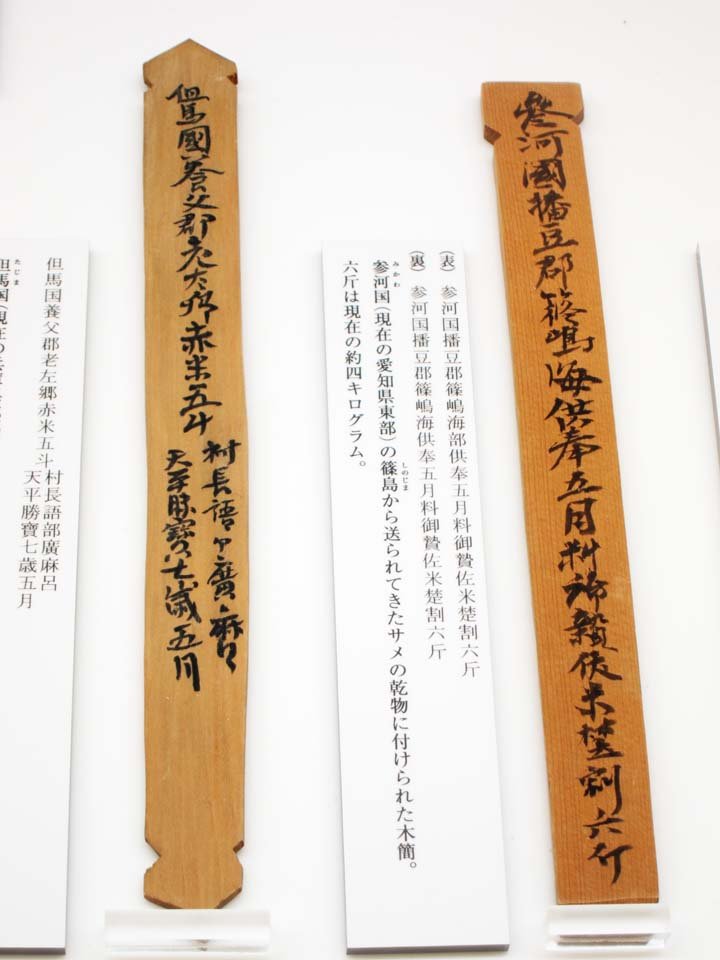 參河國播豆郡篠嶋海供奉五月料御贄佐米楚割六斤
(表) 参河国播豆郡篠嶋海部供奉五月料御贄佐米楚割六斤
(裏) 参河国播豆郡篠嶋海供奉五月料御贄佐米楚割六斤
みかわ しのじま
参河国(現在の愛知県東部)の篠島から送られてきたサメの乾物に付けられた木簡。
六斤は現在の約四キログラム。
但馬國養父郡老左郷赤米五斗
村長語ア廣麻呂
天平勝寶七歳五月
但馬国養父郡老左郷赤米五斗
村長語部廣麻呂
天平勝寶七歳五月
たじま
但馬国(現在の